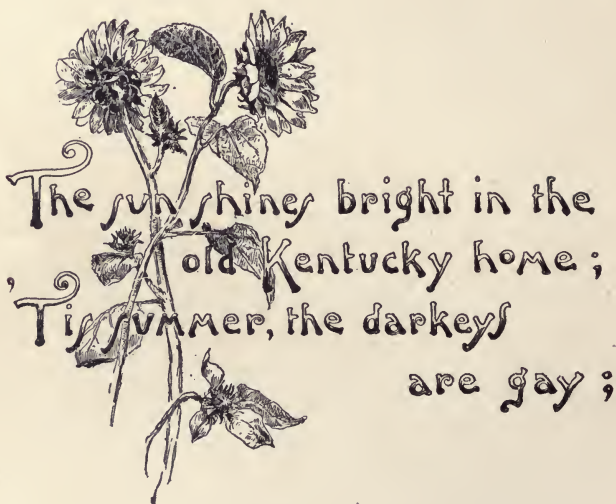 The sun shines bright in the
old Kentucky home ;
'Tis summer, the darkeys
are gay ;